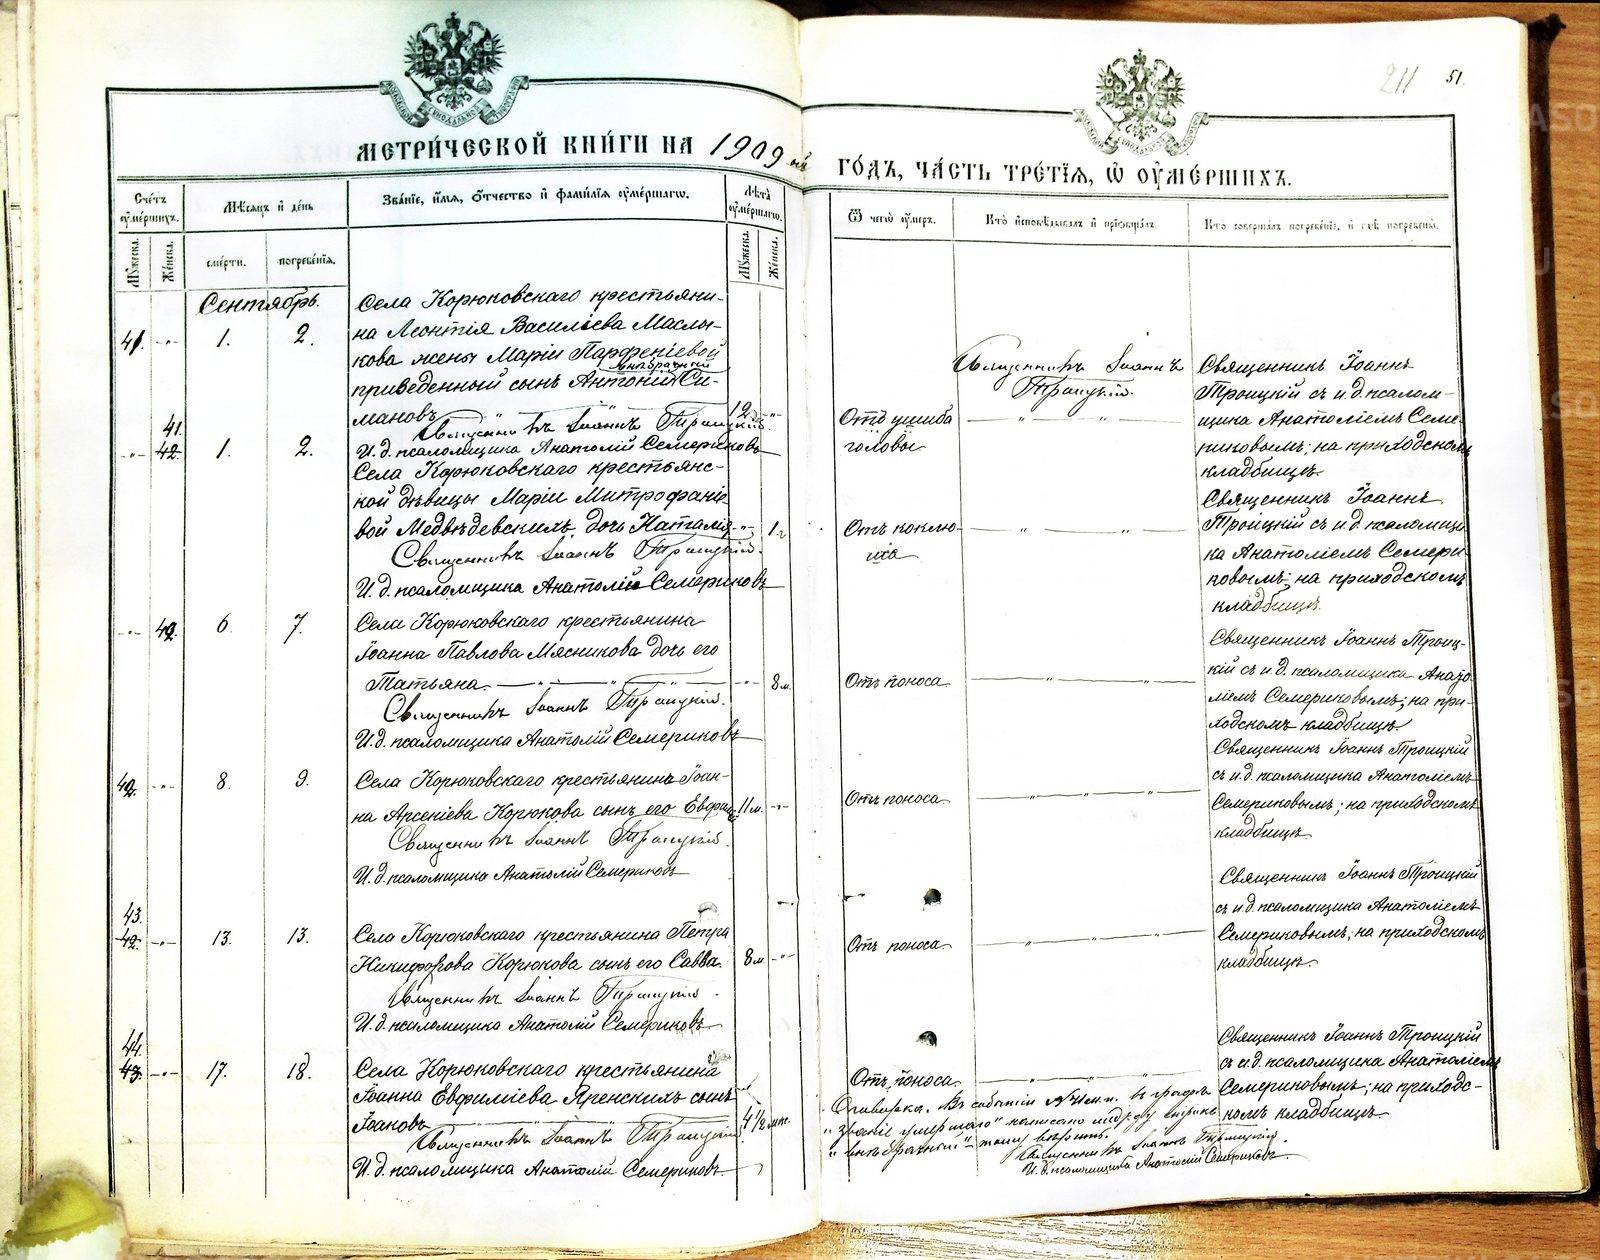 МЕТРИ́ЧЕСКОЙ КНИ́ГИ НА 1909 ый
ГО́ДЪ, ЧА́СТЬ ТРЕ́ТІЯ, Ѿ ОУМЕ́РШИХЪ.
211 51.
Сче́тъ оуме́ршихъ.
Мѣсяцъ и де́нь
Зва́ніе, и́мя, о́тчество и фами́лія оуме́ршаго.
Лѣта̀ оуме́ршаго.
Ѿ чегѡ̀ оу́меръ.
Кто̀ исповѣ́дывалъ и пріобща́лъ.
Кто соверша́лъ погребе́ніе, и гдѣ̀ погребены̀.
Му́жеска.
Же́нска.
сме́рти.
погребе́нія.
Му́жеска.
Же́нска.
Сентябрь.
Села Корюковскаго крестьяни-
41. -"- 1. 2.
на Леонтія Васильева Маслы-
кова жены Маріи Парфеніевой
внѣбрачный
приведенный сынъ Антоній Си-
мановъ 12
Священникъ Іоаннъ Троицкій.
И. д. псаломщика Анатолій Семериковъ
Отъ ушиба
головы
Священникъ Іоаннъ
Троицкій.
Священникъ Іоаннъ
Троицкій съ и. д. псалом-
щика Анатоліемъ Семе-
риковымъ; на приходскомъ
кладбищѣ.
41.
-"- 42. 1. 2.
Села Корюковскаго крестьянс-
кой дѣвицы Маріи Митрофаніе
вой Медвѣдевскихъ дочь Наталія -"- 1 г
Священникъ Іоаннъ Троицкій.
И. д. псаломщика Анатолій Семериковъ
Отъ коклю-
ша
Священникъ Іоаннъ
Троицкій съ и. д. псаломщи
ка Анатоліемъ Семери-
ковымъ; на приходскомъ
кладбищѣ.
-"- 42. 6. 7.
Села Корюковскаго крестьянина
Іоанна Павлова Мясникова дочь его
Татьяна. -"- 8 м.
Священникъ Іоаннъ Троицкій.
И. д. псаломщика Анатолій Семериковъ
Отъ поноса
Священникъ Іоаннъ Троиц-
кій съ и. д. псаломщика Анато-
ліемъ Семериковымъ; на при-
ходскомъ кладбищѣ.
42. -"- 8. 9.
Села Корюковскаго крестьянина Іоан-
на Арсеніева Корюкова сынъ его 11 м. -"-
Священникъ Іоаннъ Троицкій.
И. д. псаломщика Анатолій Семериковъ
Отъ поноса
Священникъ Іоаннъ Троицкій
съ и. д. псаломщика Анатоліемъ
Семериковымъ; на приходскомъ
кладбищѣ.
43.
42. -"- 13. 13.
Села Корюковскаго крестьянина Петра
Никифорова Корюкова сынъ его Савва. 8 м -"-
Священникъ Іоаннъ Троицкій.
И. д. псаломщика Анатолій Семериковъ
Отъ поноса
Священникъ Іоаннъ Троицкій
съ и. д. псаломщика Анатоліемъ
Семериковымъ; на приходскомъ
кладбищѣ.
44.
43. -"- 17. 18.
Села Корюковскаго крестьянина
Іоанна Евфиміева Яренскихъ сынъ
Іоаннъ 4½ мѣс.
Священникъ Іоаннъ Троицкій
И. д. псаломщика Анатолій Семериковъ.
Отъ поноса
Священникъ Іоаннъ Троицкій
съ и. д. псаломщика Анатоліемъ
Семериковымъ; на приходс-
комъ кладбищѣ.
Оговорка. Въ событіи № 41 м. п. въ графѣ
"званіе умершаго" написано между строкъ
"внѣбрачный" – тому вѣрить.
Священникъ Іоаннъ Троицкій.
И. д. псаломщика Анатолій Семериковъ.